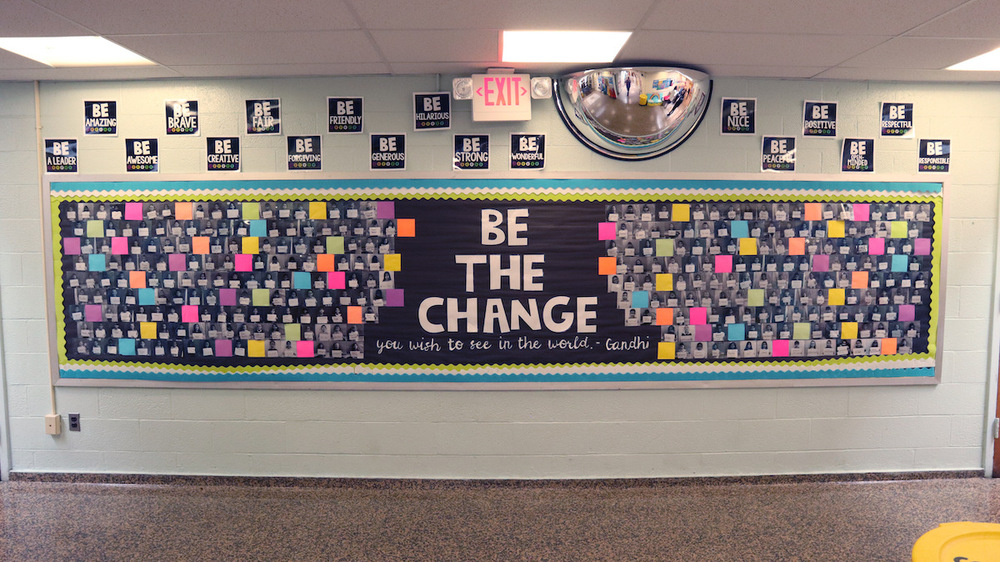 BE AMAZING
BE BRAVE
BE FAIR
BE FRIENDLY
BE HILARIOUS
EXIT
BE NICE
BE POSITIVE
BE RESPECTFUL
BE A LEADER
BE AWESOME
BE CREATIVE
BE FORGIVING
BE GENEROUS
BE STRONG
BE WONDERFUL
BE PEACEFUL
BE OPEN-MINDED
BE RESPONSIBLE
BE
THE
CHANGE
you wish to see in the world. - Gandhi